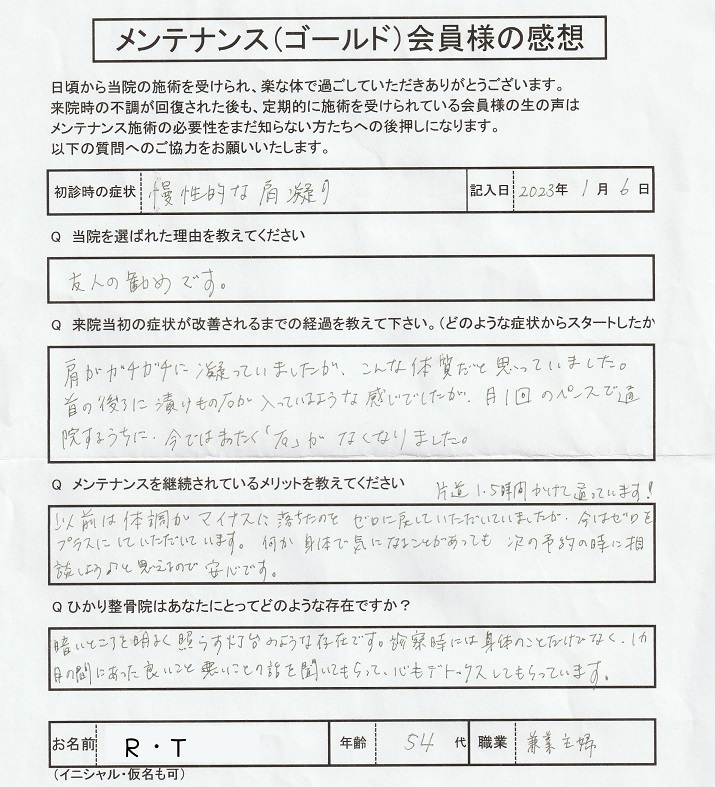 メンテナンス（ゴールド）会員様の感想
日頃から当院の施術を受けられ、楽な体で過ごしていただきありがとうございます。
来院時の不調が回復された後も、定期的に施術を受けられている会員様の生の声は
メンテナンス施術の必要性をまだ知らない方たちへの後押しになります。
以下の質問へのご協力をお願いいたします。
初診時の症状 慢性的な肩凝り 記入日 2023年 1月 6日
Q 当院を選ばれた理由を教えてください
友人の勧めです。
Q 来院当初の症状が改善されるまでの経過を教えて下さい。（どのような症状からスタートしたか
肩がガチガチに凝っていましたが、こんな体質だと思っていました。
首の後ろに漬けもの石が入っているような感じでしたが、月1回のペースで通
院するうちに、今ではまったく「石」がなくなりました。
Q メンテナンスを継続されているメリットを教えてください
片道1.5時間かけて通っています！
以前は体調がマイナスに落ちたのをゼロに戻していただいていましたが、今はゼロを
プラスにしていただいています。何か身体で気になることがあっても次の予約の時に相
談しようと思えるので安心です。
Q ひかり整骨院はあなたにとってどのような存在ですか？
暗いところを明るく照らす灯台のような存在です。診察時には身体のことだけでなく、1カ
月の間にあった良いこと悪いことの話を聞いてもらって、心もデトックスしてもらっています。
お名前 R・T 年齢 54 代 職業 兼業主婦
（イニシャル・仮名も可）